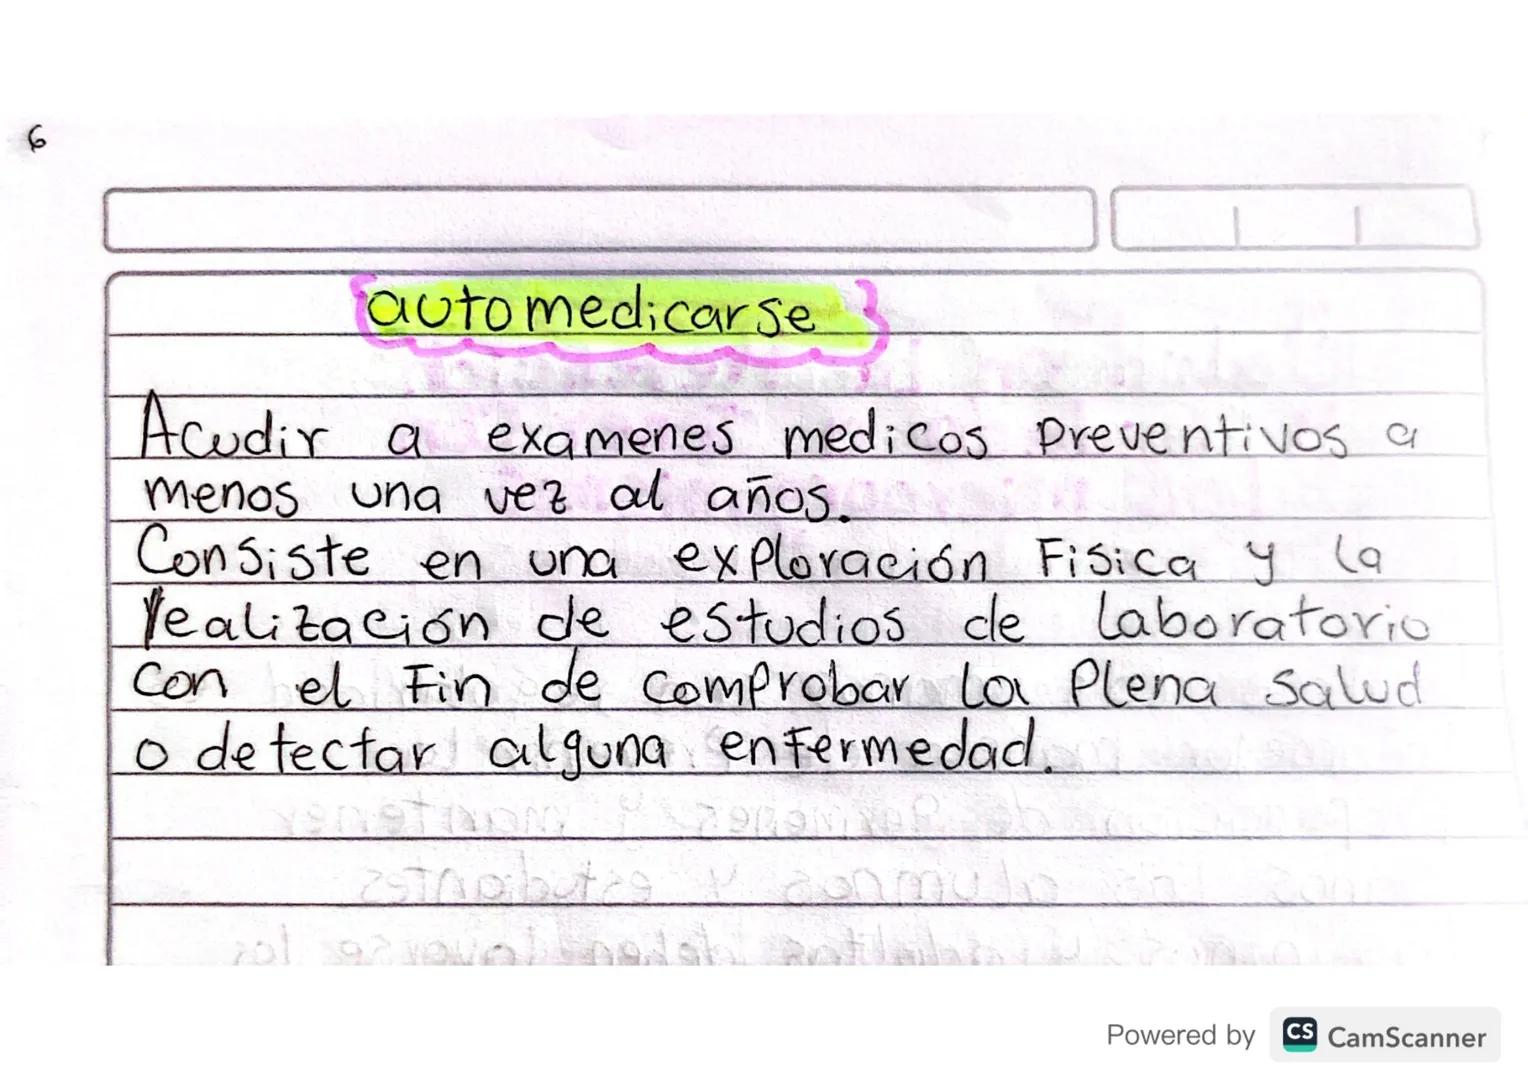 6
automedicarse
Acudir a examenes medicos preventivos a
menos una vez al años.
Consiste en una exploración Fisica y la
realización de estudios de laboratorio
con el Fin de comprobar la Plena salud
o detectar alguna enfermedad.
Powered by CS CamScanner